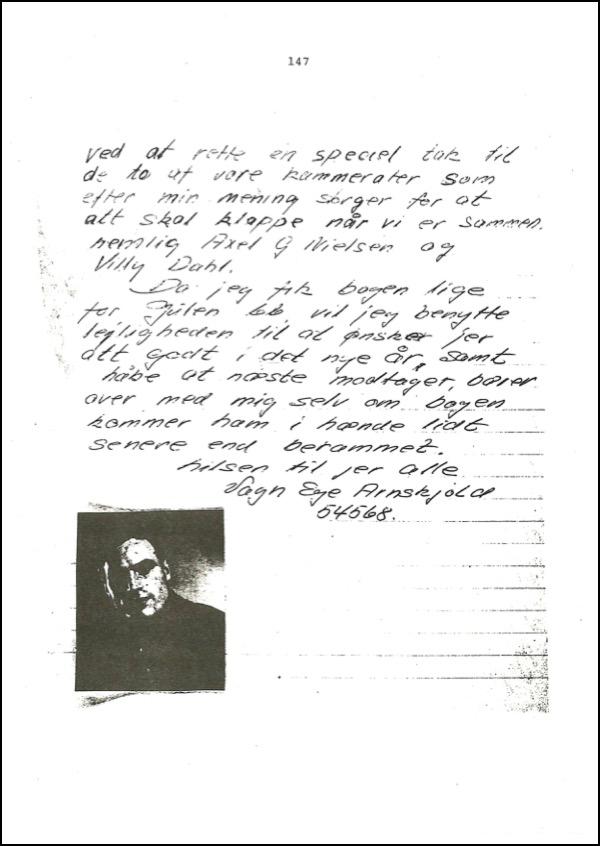 147
ved at rette en speciel tak til
de to af vore kammerater som
efter min mening sørger for at
alt skal klappe når vi er sammen.
nemlig Axel G Nielsen og
Villy Dahl.
Da jeg fik bogen lige
før Julen vil jeg benytte
lejligheden til at ønsker jer
alt godt i det nye år, samt
håbe at næste modtager, bærer
over med mig selv om bogen
kommer ham i hænde lidt
senere end berammet.
hilsen til jer alle
Vagn Ege Arnskjold
54568.